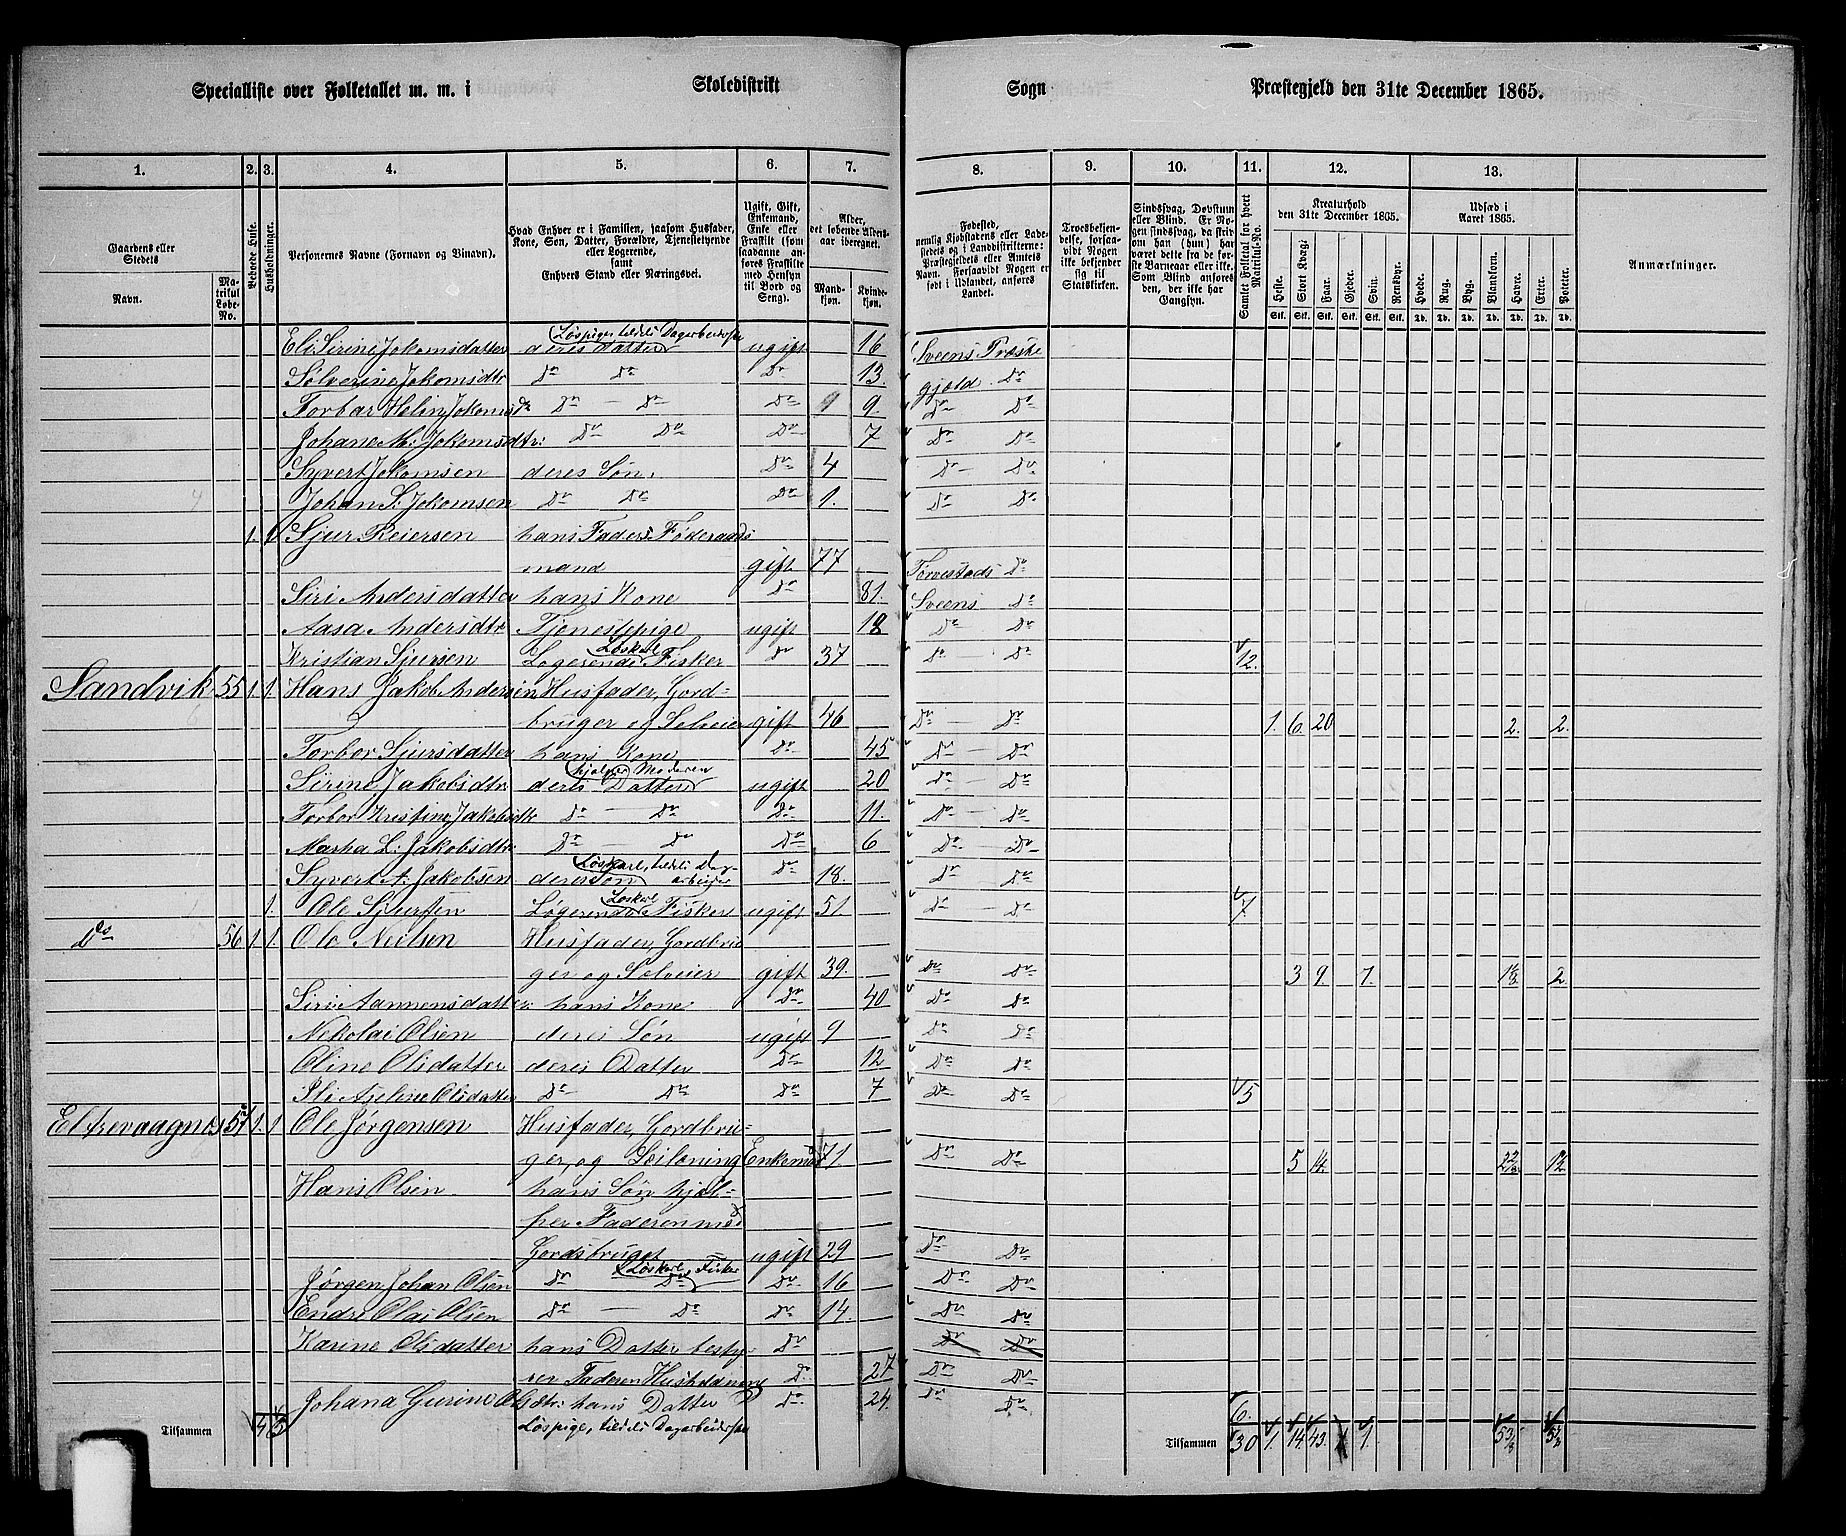 Specialliste over Folketallet m. m. i Skoledistrikt Sogn Præstegjeld den 31te December 1865.
1. 2. 3. 4. 5. 6. 7. 8. 9. 10. 11. 12. 13.
Gaardens eller Stedets Navn. Matrikul Løbe-No. Beboede Huse. Husholdninger. Personernes Navne (Fornavn og Binavn). Hvad Enhver er i Familien, saasom Husfader, Kone, Søn, Datter, Forældre, Tjenestetyende eller Logerende, samt Enhvers Stand eller Næringsvei. Ugift, Gift, Enkemand, Enke eller Fraskilt (som saadanne anføres Fraskilte med Hensyn til Bord og Seng). Alder, det løbende Alders-aar iberegnet. Mandkjøn. Kvindekjøn.
Fødested, nemlig Kjøbstadens eller Ladestedets og i Landdistrikterne: Præstegjeldets eller Amtets Navn. Forsaavidt Nogen er født i Udlandet, anføres Landet. Troesbekjendelse, forsaavidt Nogen ikke bekjender sig til Statskirken. Sindssvag, Døvstum eller Blind. Er Nogen sindssvag, da skriv om han (hun) har været dette fra de første Barneaar eller ikke. Som Blind anføres den, der ikke har Gangsyn. Samlet Folketal for hvert Matrikul-No. Kreaturhold den 31te December 1865. Udsæd i Aaret 1865. Anmærkninger.
Heste. Stort Kvæg. Faar. Gjeder. Svin. Rensdyr. Hvede. Rug. Byg. Blandkorn. Havre. Erter. Poteter.
Stk. Stk. Stk. Stk. Stk. Stk. Td. Td. Td. Td. Td. Td. Td.
Løspige, tildels Dagarbeiderske
Eli Sirine Jokomsdatter deres Datter ugift 16 Sveens Præste
Sølverine Jokomsdtr Do Do Do 13. gjeld Do
Torbar Helin Jokomsdr Do — Do Do 9. Do Do
Johane M. Jokomsdtr: Do Do Do 7 Do Do
Syvert Jokomsen deres Søn. Do 4 Do — Do
Johan S. Jokomsen Do Do Do 1. Do Do
1. 1 Sjur Reiersen hans Faders Føderaads
mand gift 77 Torvestads Do
Siri Andersdatter hans Kone Do 81. Sveens Do
Aasa Andersdtr Tjenestepige ugift 18 Do — Do
Løskarl
Kristian Sjursen Logerende Fisker Do 37 Do — Do 12.
Sandvik 55 1. 1. Hans Jakob Andersen Husfader, Gord-
bruger og Selveier gift 46 Do — Do 1. 6. 20 2. 2.
Torbor Sjursdatter hans Kone Do 45 Do — Do
hjælper Moderen
Sirine Jakobsdtr deres Datter ugift 20 Do — Do
Torbor Kristine Jakobsdtr Do — Do Do 11. Do — Do
Marha L. Jakobsdtr: Do — Do Do 6 Do — Do
Løskarl, tildels Dag-
arbeider
Syvert A. Jakobsen deres Søn Do 18. Do Do
Løskarl
1. Ole Sjursen Logerende Fisker ugift 51 Do — Do 7
Do 56 1. 1. Ole Neelsen Husfader, Gordbru-
ger og Selveier gift 39. Do Do 3 9. 1. 2.
Siri Aanensdatter: hans Kone Do 40 Do Do
Nekolai Olsen deres Søn ugift 9 Do Do
Oline Olsdatter deres Datter Do 12 Do Do
Eli Axeline Olsdatter Do Do Do 7 Do Do 5
Eltrevaagnes 57 1. 1 Ole Jørgensen Husfader, Gordbru-
ger, og Leilænding Enkemad 71. Do Do 5 14.
Hans Olsen hans Søn hjæl-
per Faderen med
Gordsbruget ugift 29 Do Do
Løskarl, Fisker
Jørgen Johan Olsen Do Do Do 16 Do Do
Endre Olai Olsen Do — Do Do 14. Do Do
Karine Olsdatter hans Datter besty- Do Do Do
rer Faderen Husholdning Do 27 Do Do
Johana Gurine Olsdtr: hans Datter Do 24. Do Do
Løspige, tildels Dagarbeiderske 6.
Tilsammen 4 5 Tilsammen 30 1. 14. 43. 1.